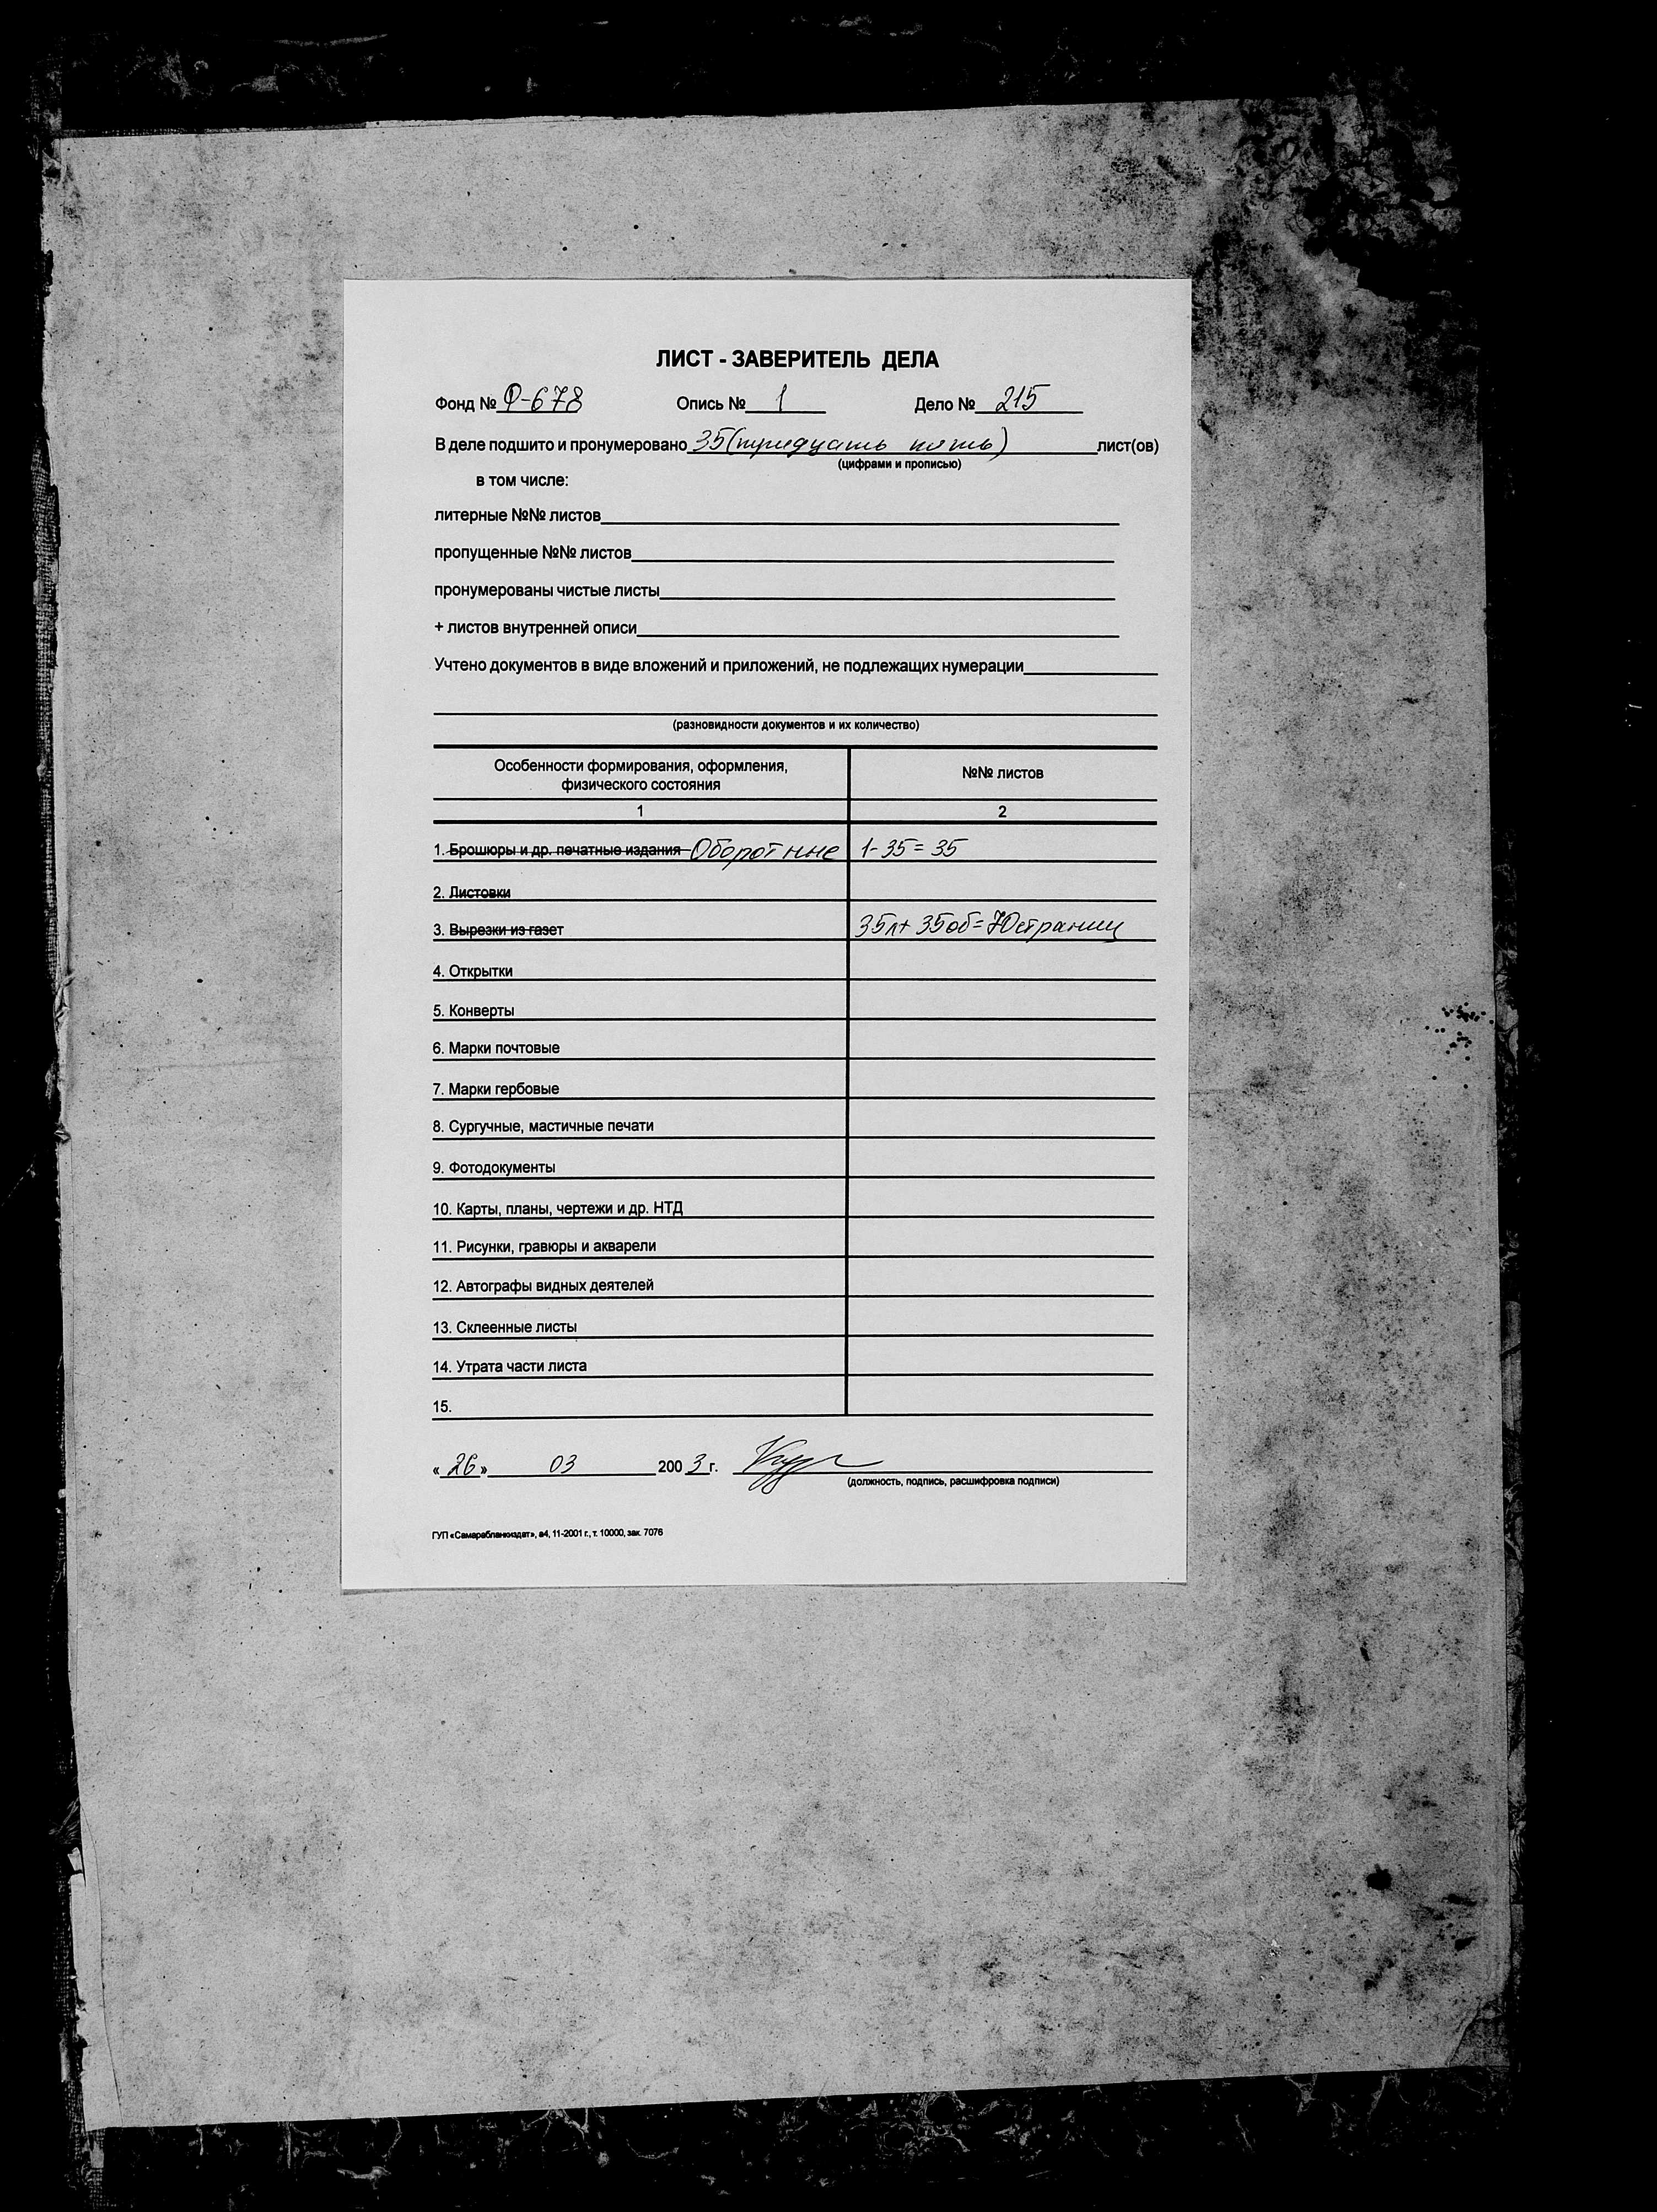 ЛИСТ - ЗАВЕРИТЕЛЬ ДЕЛА
Фонд № Ф-678 Опись № 1 Дело № 215
В деле подшито и пронумеровано 35 (тридцать пять) лист(ов)
(цифрами и прописью)
в том числе:
литерные №№ листов
пропущенные №№ листов
пронумерованы чистые листы
+ листов внутренней описи
Учтено документов в виде вложений и приложений, не подлежащих нумерации
(разновидности документов и их количество)
Особенности формирования, оформления, №№ листов
физического состояния
1 2
1. Брошюры и др. печатные издания Оборотные 1-35=35
2. Листовки
3. Вырезки из газет 35л+35об=70страниц
4. Открытки
5. Конверты
6. Марки почтовые
7. Марки гербовые
8. Сургучные, мастичные печати
9. Фотодокументы
10. Карты, планы, чертежи и др. НТД
11. Рисунки, гравюры и акварели
12. Автографы видных деятелей
13. Склеенные листы
14. Утрата части листа
15.
« 26 » 03 200 3 г.
(должность, подпись, расшифровка подписи)
ГУП «Самарабланкиздат», а4, 11-2001 г., т. 10000, зак. 7076